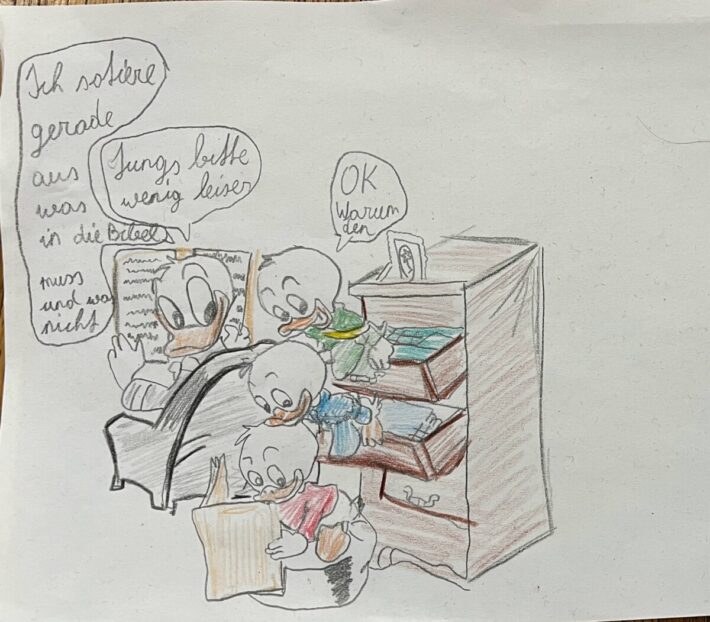 Jungs bitte
wenig leiser
OK
Warum
den
Ich sotiere
gerade
aus
was
in die Bibel
muss
und was
nicht